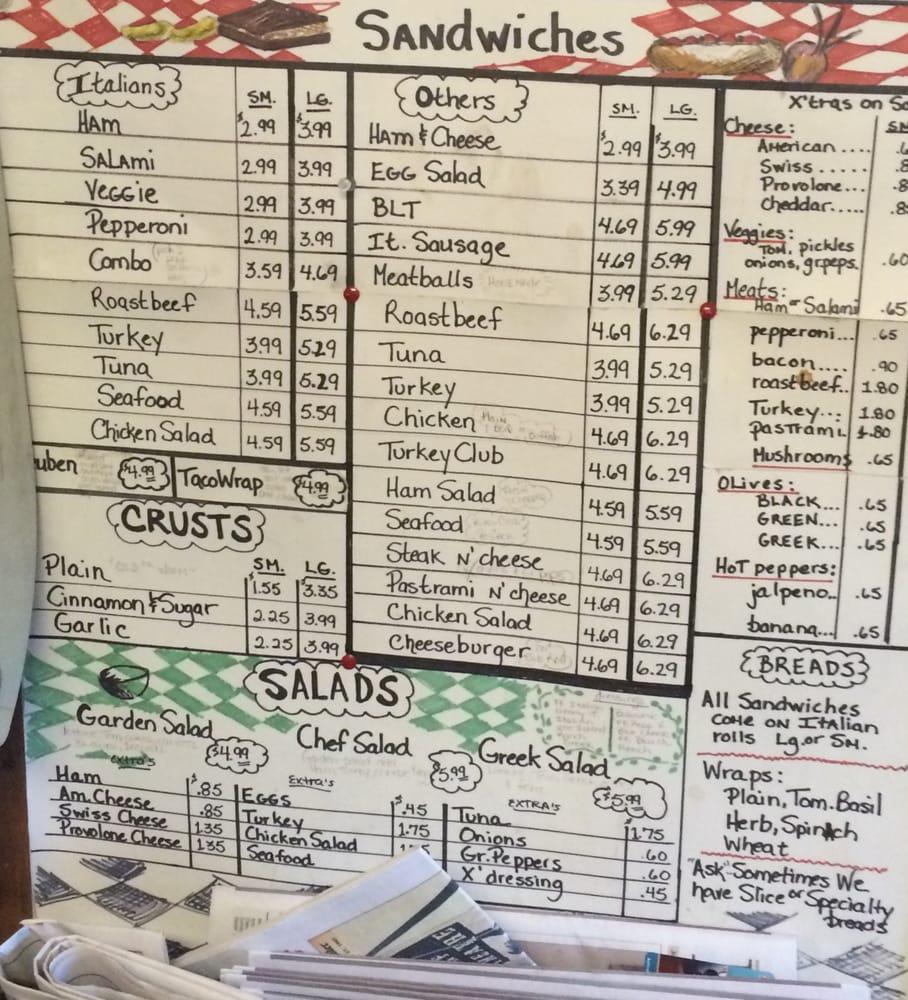 Sandwiches
Italians SM. LG.
Ham $2.99 $3.99
Salami 2.99 3.99
Veggie 2.99 3.99
Pepperoni 2.99 3.99
Combo 3.59 4.69
Roastbeef 4.59 5.59
Turkey 3.99 5.29
Tuna 3.99 5.29
Seafood 4.59 5.59
Chicken Salad 4.59 5.59
uben $4.99 TacoWrap $4.99
CRUSTS
SM. LG.
Plain $1.55 3.35
Cinnamon & Sugar 2.25 3.99
Garlic 2.25 3.99
Others SM. LG.
Ham & Cheese $2.99 $3.99
Egg Salad 3.39 4.99
BLT 4.69 5.99
It. Sausage 4.69 5.99
Meatballs 3.99 5.29
Roastbeef 4.69 6.29
Tuna 3.99 5.29
Turkey 3.99 5.29
Chicken 4.69 6.29
Turkey Club 4.69 6.29
Ham Salad 4.59 5.59
Seafood 4.59 5.59
Steak N' cheese 4.69 6.29
Pastrami N' cheese 4.69 6.29
Chicken Salad 4.69 6.29
Cheeseburger 4.69 6.29
X'tras on
Cheese:
American ....
Swiss .....
Provolone...
Cheddar.....
Veggies:
Tom, pickles
onions, gr.peps. .60
Meats:
Ham or Salami .65
pepperoni... .65
bacon.... .90
roastbeef.. 1.80
Turkey... 1.80
Pastrami. 1.80
Mushrooms .65
Olives:
BLACK... .65
GREEN... .65
GREEK... .65
HoT peppers:
jalpeno.. .65
banana... .65
BREADS
All Sandwiches
come on Italian
rolls Lg. or Sm.
Wraps:
Plain, Tom. Basil
Herb, Spinach
Wheat
"Ask" Sometimes We
have Slice or Specialty
breads
SALADS
Garden Salad $4.99
extra's
Ham $.85
Am. Cheese .85
Swiss Cheese 1.35
Provolone Cheese 1.35
Chef Salad $5.99
Extra's
EGGS $.45
Turkey 1.75
Chicken Salad
Seafood
Greek Salad $5.99
EXTRA'S
Tuna 1.75
Onions .60
Gr. Peppers .60
X' dressing .45